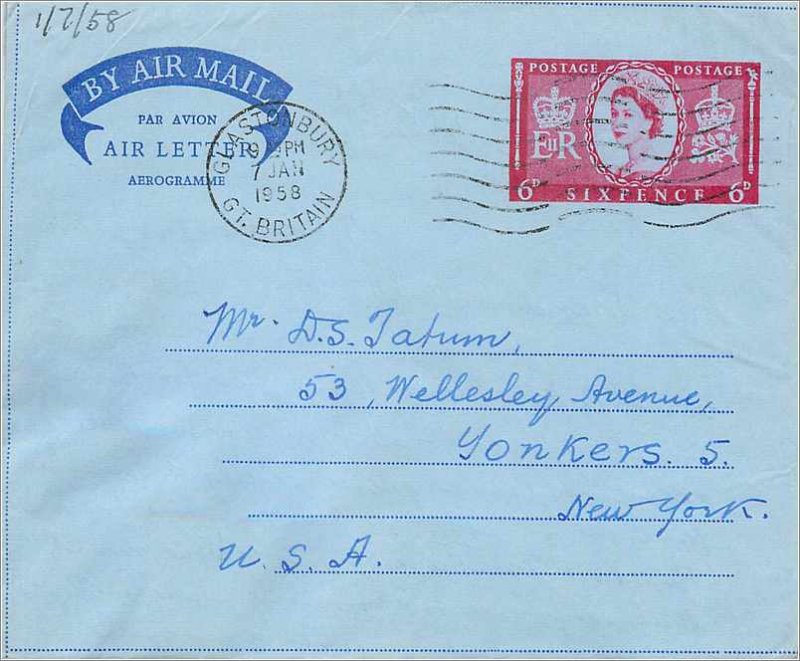 1/7/58
BY AIR MAIL
PAR AVION
AIR LETTER
AEROGRAMME
GLASTONBURY
PM
7 JAN
1958
GT. BRITAIN
POSTAGE POSTAGE
EIIR
6D SIXPENCE 6D
Mr. D.S. Tatum,
53, Wellesley Avenue,
Yonkers. 5.
New York.
U. S. A.